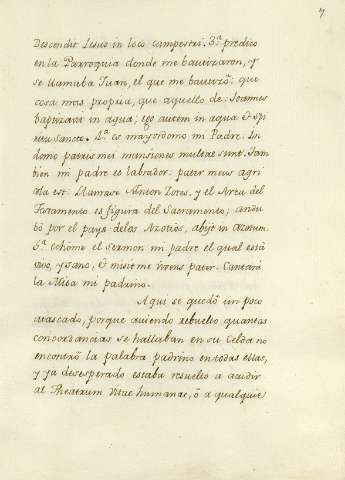 7
Descendit Iesus in loco campestri. 3.ª predico
en la Parroquia donde me bautizaron, y
se llamaba Juan, el que me bautizó: que
cosa mas propia, que aquello de: Joannes
baptizavit in aqua; ego autem in aqua & Spi
ritu Sancto. 4.ª es mayordomo mi Padre: In
domo patris mei mansiones multae sunt. Tam
bien mi padre es labrador: pater meus agri
cola est. Llamase Anton Zotes, y el Arca del
Testamento es figura del Sacramento; andu
bó por el pays delos Azotios, abijt in Azotum.
5.ª cohòme el sermon mi padre el qual està
vivo, y sano, & misit me vivens pater. Cantarà
la Misa mi padrino.
Aqui se quedó un poco
atascado, porque aviendo rebuelto quantas
concordancias se hallaban en su Celda no
encontrò la palabra padrino en todas ellas,
y ya desesperado estaba resuelto a acudir
al Theatrum Vitae humanae, ò a qualquie